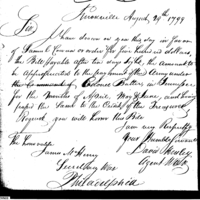 Knoxville August 29th 1799
Sir,
I have drawn on you this day in favor
of James & Co on order for four hundred dollars,
the Bill payable after ten days sight, the amount to
be appropriated to the payment of the Army under
the Command of Colonel Butler, in Tennessee
for the Months of April, May & June, and having
paid the same to the Order of the Treasurer
Request you will honor this Bill
I am very Respectfully
Your Humble Servant
David Henley
Agent W.D.
The Honorable
James McHenry
Secretary War
Philadelphia